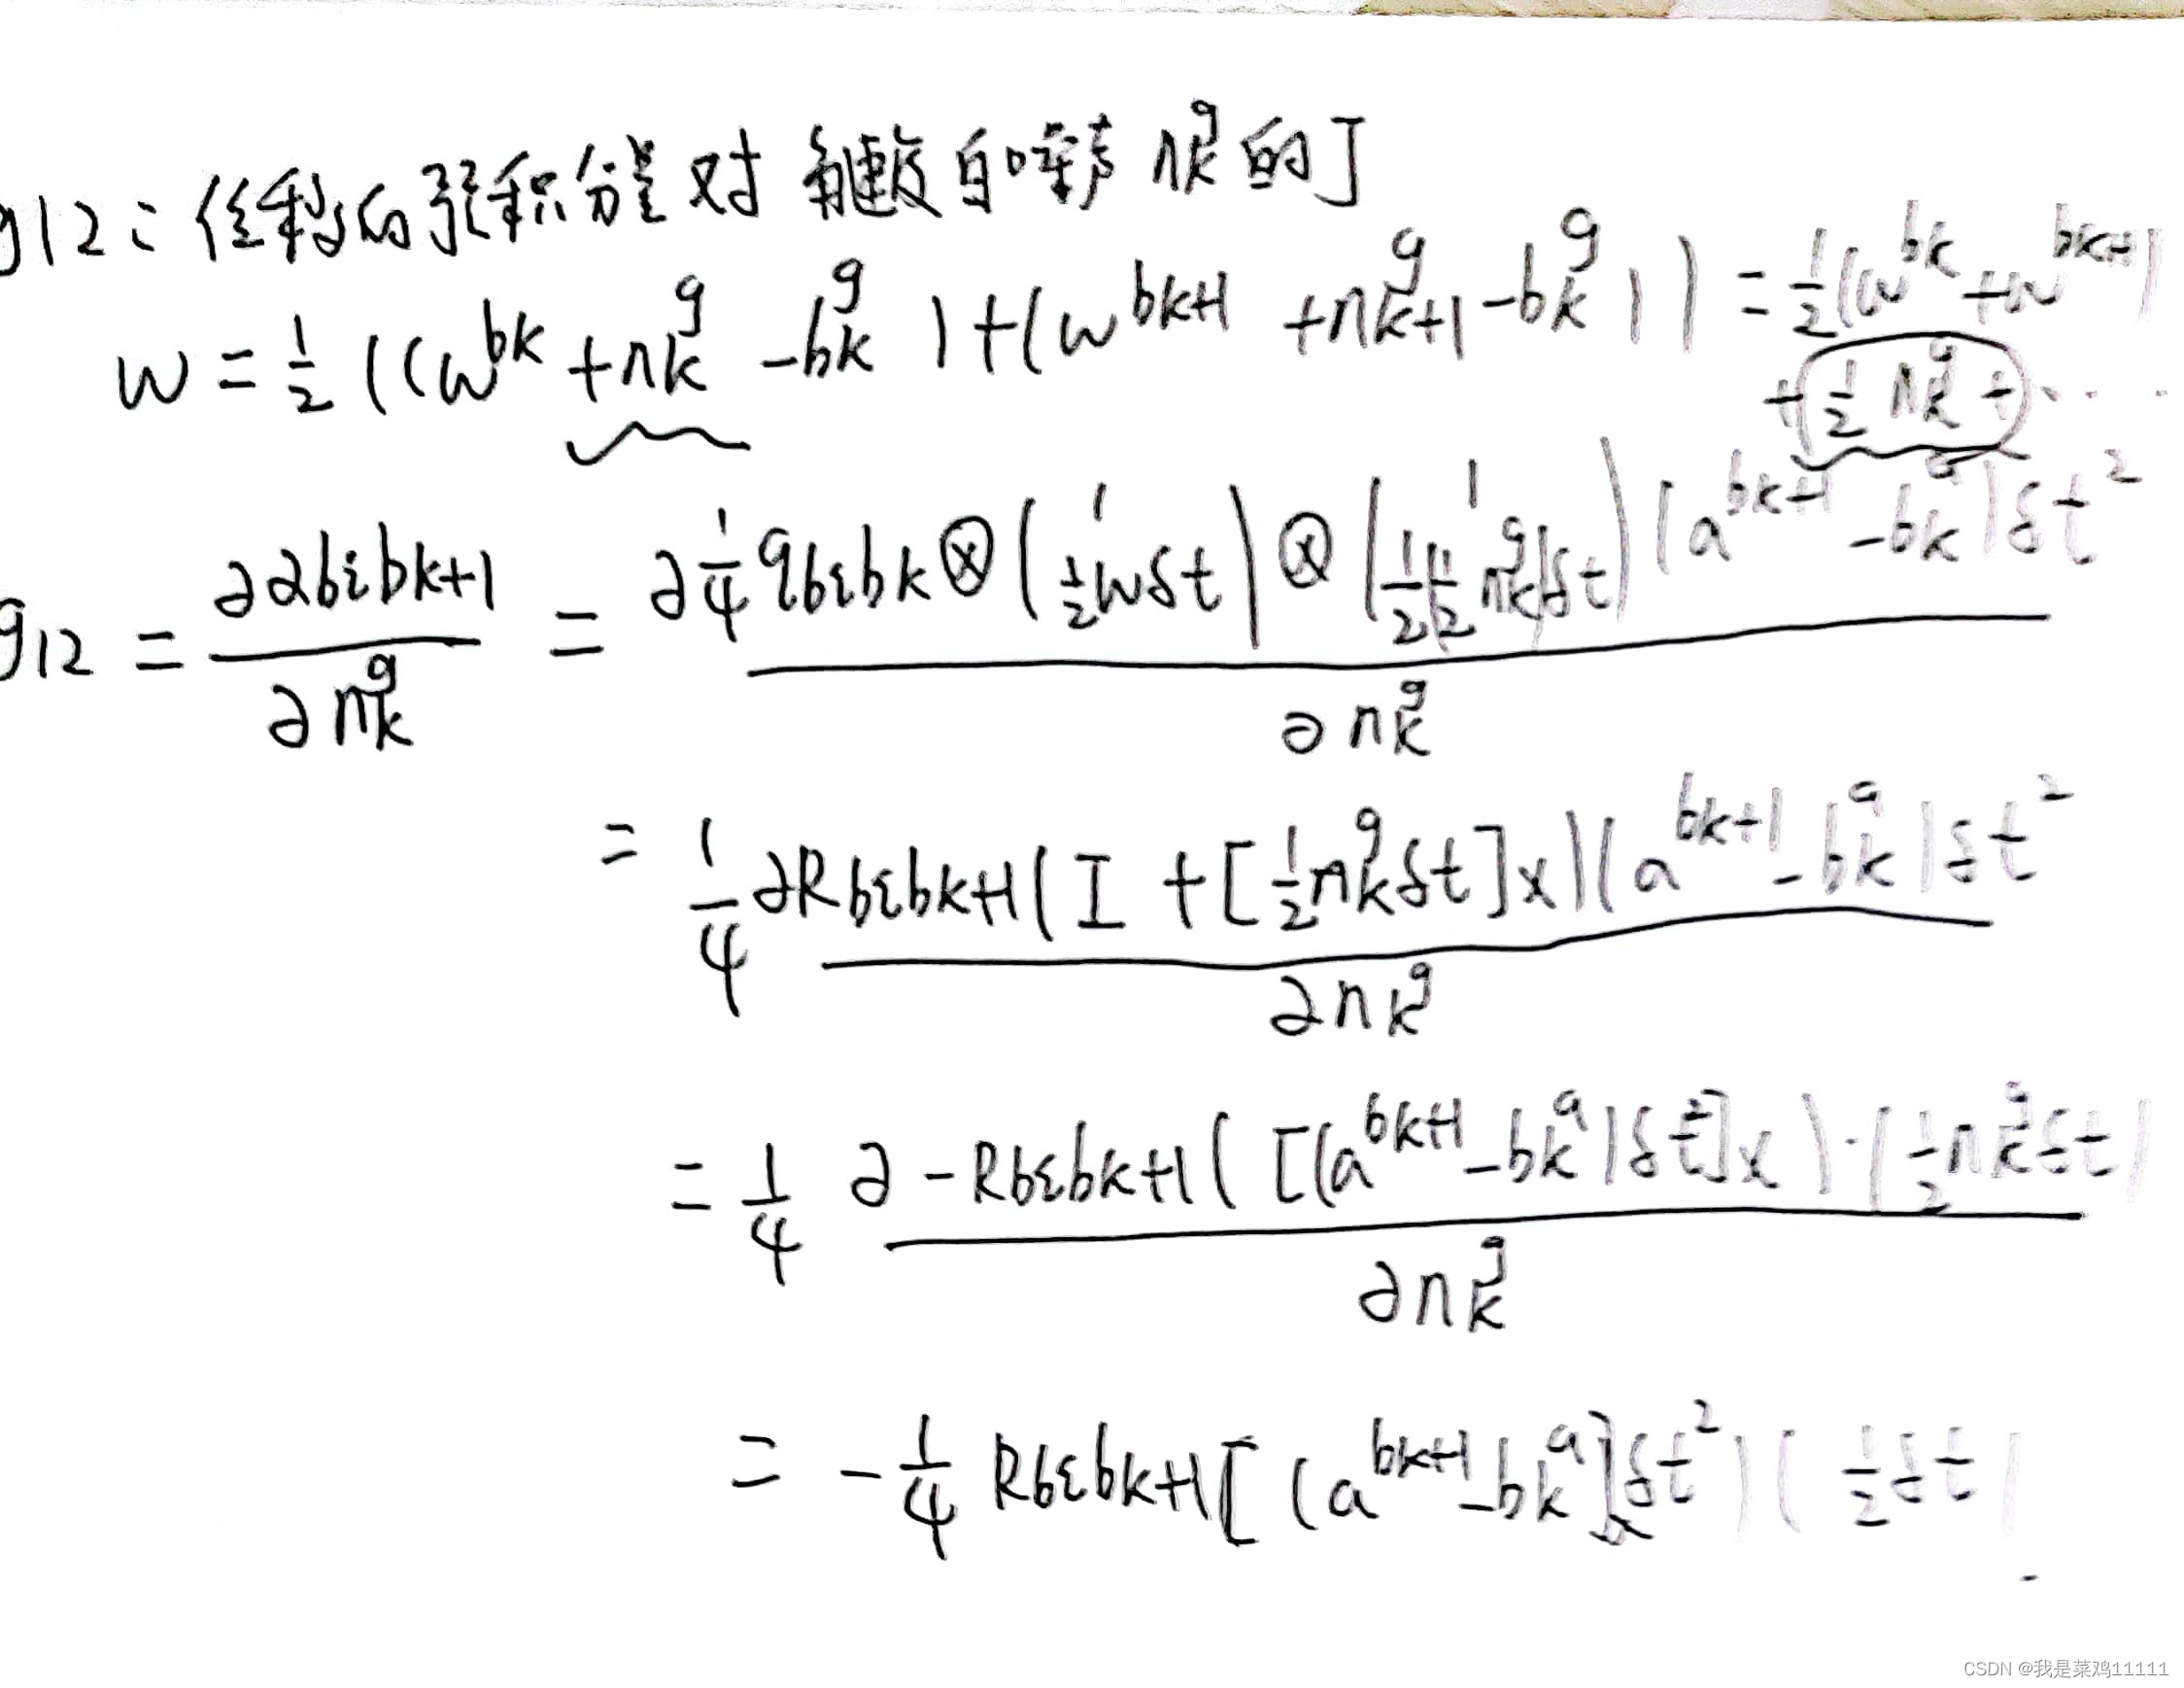 g12: 位移的预积分量对 角速度白噪声 n_k^g 的 J
w = \frac{1}{2} ((w^{bk} + n_k^g - b_k^g) + (w^{bk+1} + n_{k+1}^g - b_k^g)) = \frac{1}{2}(w^{bk} + w^{bk+1})
+ \frac{1}{2} n_k^g + ....
g12 = \frac{∂αbibk+1}{∂n_k^g} = \frac{∂\frac{1}{4} qbibk ⊗ (\frac{1}{\frac{1}{2}wδt}) ⊗ (\frac{1}{\frac{1}{2}(\frac{1}{2}n_k^g)δt}) (a^{bk+1} - b_k^a)δt^2}{∂n_k^g}
= \frac{1}{4} \frac{∂Rbibk+1(I + [\frac{1}{2}n_k^gδt]x)(a^{bk+1} - b_k^a)δt^2}{∂n_k^g}
= \frac{1}{4} \frac{∂ -Rbibk+1([(a^{bk+1} - b_k^a)δt^2]x)·(\frac{1}{2}n_k^gδt)}{∂n_k^g}
= -\frac{1}{4} Rbibk+1[(a^{bk+1} - b_k^a]_xδt^2)(\frac{1}{2}δt)
CSDN @我是菜鸡11111